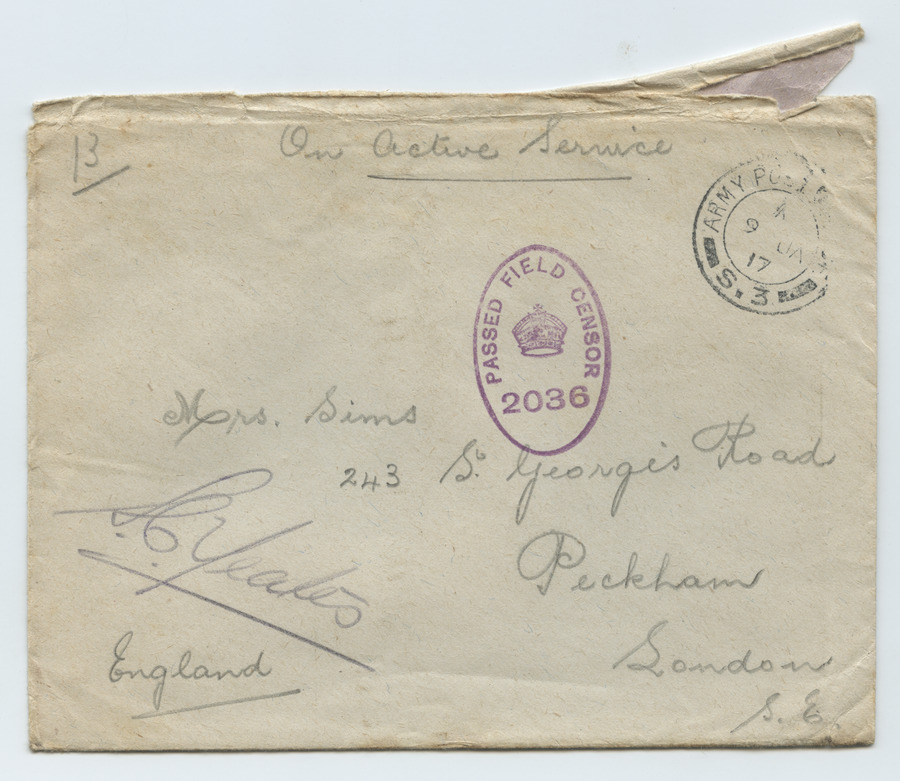 On Active Service
13
ARMY POST
9 JA
17
S.3
PASSED FIELD CENSOR
2036
Mrs. Sims
243 St Georges Road
Peckham
London
S. E.
Yeates
England